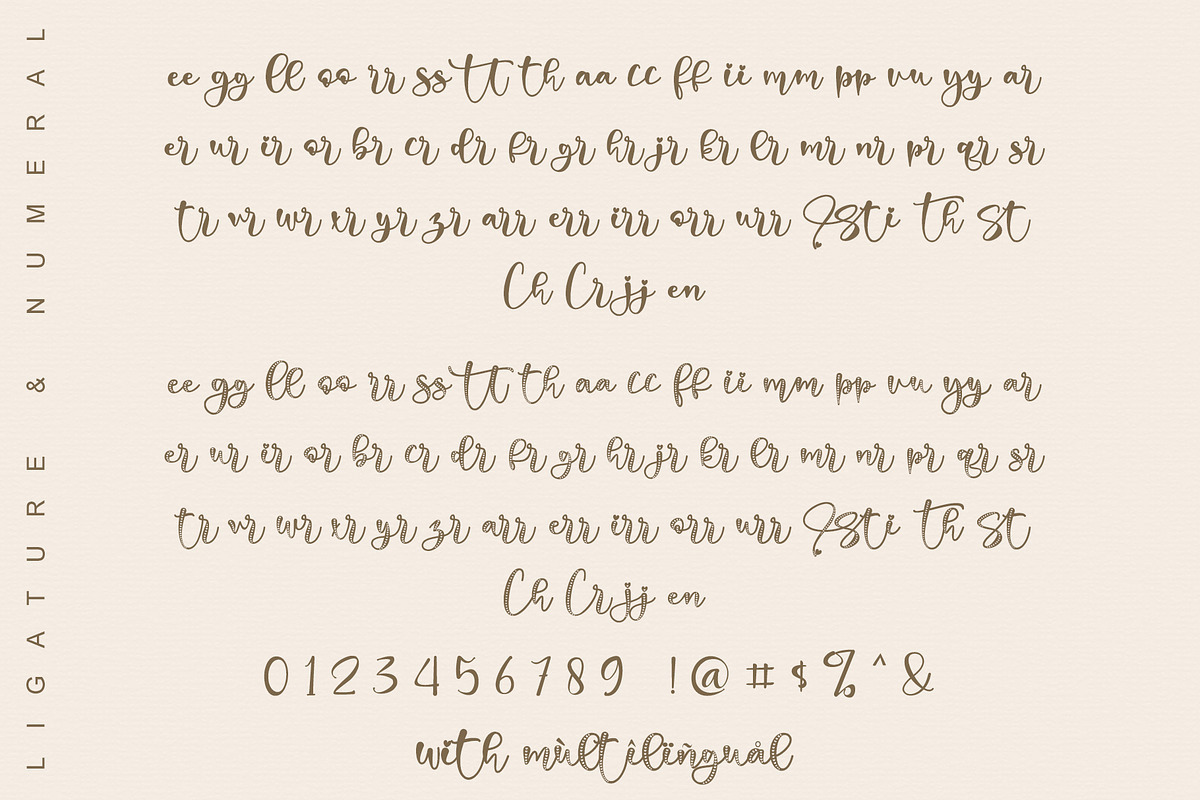 LIGATURE & NUMERAL
ee gg ll oo rr ss tt th aa cc ff ii mm pp vu yy ar
er ur ir or br cr dr fr gr hr jr kr lr mr nr pr qr sr
tr vr wr xr yr zr arr err irr orr urr Th St
Ch Cr jj en
ee gg ll oo rr ss tt th aa cc ff ii mm pp vu yy ar
er ur ir or br cr dr fr gr hr jr kr lr mr nr pr qr sr
tr vr wr xr yr zr arr err irr orr urr Th St
Ch Cr jj en
0 1 2 3 4 5 6 7 8 9 ! @ # $ % ^ &
with mùltîlïñguål